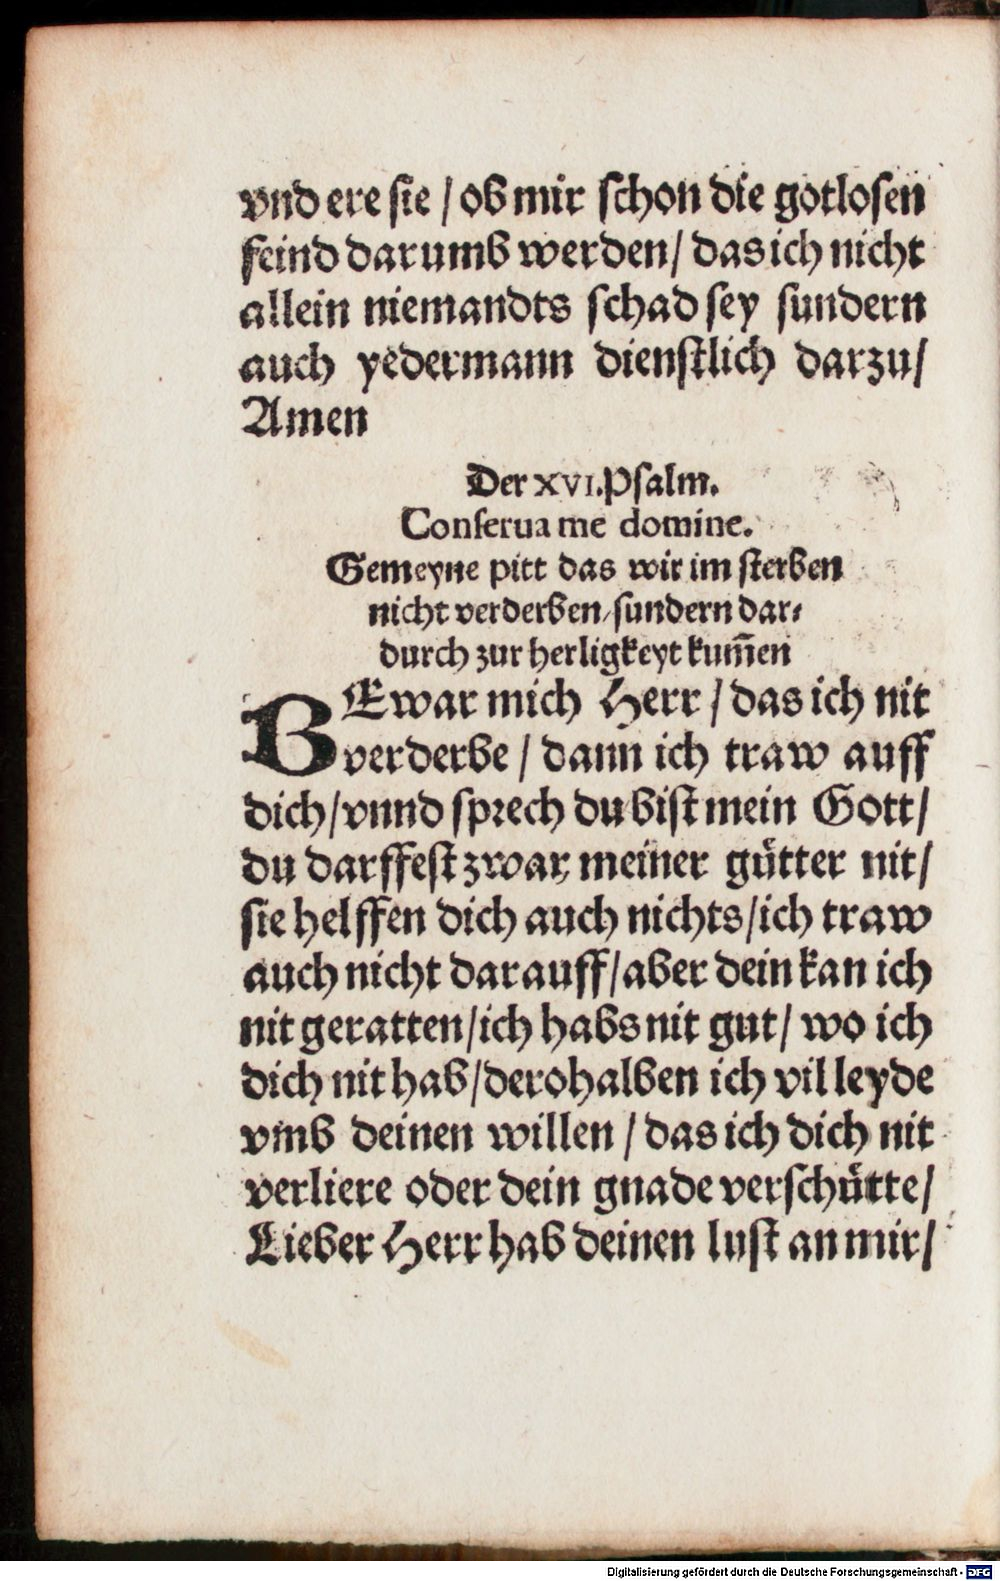 vnd ere sie / ob mir schon die gotlosen
feind darumb werden / das ich nicht
allein niemandts schad sey sundern
auch yedermann dienstlich darzu /
Amen
Der XVI. Psalm.
Conserua me domine.
Gemeyne pitt das wir im sterben
nicht verderben / sundern dar⸗
durch zur herligkeyt kum̄en
BEwar mich Herr / das ich nit
verderbe / dann ich traw auff
dich / vnnd sprech du bist mein Gott /
du darffest zwar meiner guͤtter nit /
sie helffen dich auch nichts / ich traw
auch nicht darauff / aber dein kan ich
nit geratten / ich habs nit gut / wo ich
dich nit hab / derohalben ich vil leyde
vmb deinen willen / das ich dich nit
verliere oder dein gnade verschuͤtte /
Lieber Herr hab deinen lust an mir /
Digitalisierung gefördert durch die Deutsche Forschungsgemeinschaft - DFG